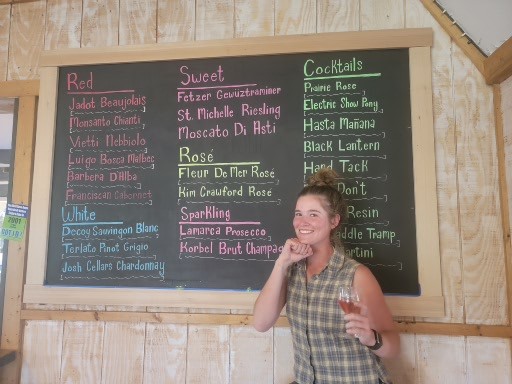 Red
Jadot Beaujolais
Monsanto Chianti
Vietti Nebbiolo
Luigo Bosca Malbec
Barbera D'Alba
Franciscan Cabernet
White
Decoy Sauvingon Blanc
Terlato Pinot Grigio
Josh Cellars Chardonnay
Sweet
Fetzer Gewuztraminer
St. Michelle Riesling
Moscato Di Asti
Rosé
Fleur De Mer Rosé
Kim Crawford Rosé
Sparkling
Lamarca Prosecco
Korbel Brut Champag
Cocktails
Prairie Rose
Electric Show Pony
Hasta Mañana
Black Lantern
Hard Tack
Don't
Resin
addle Tramp
artini